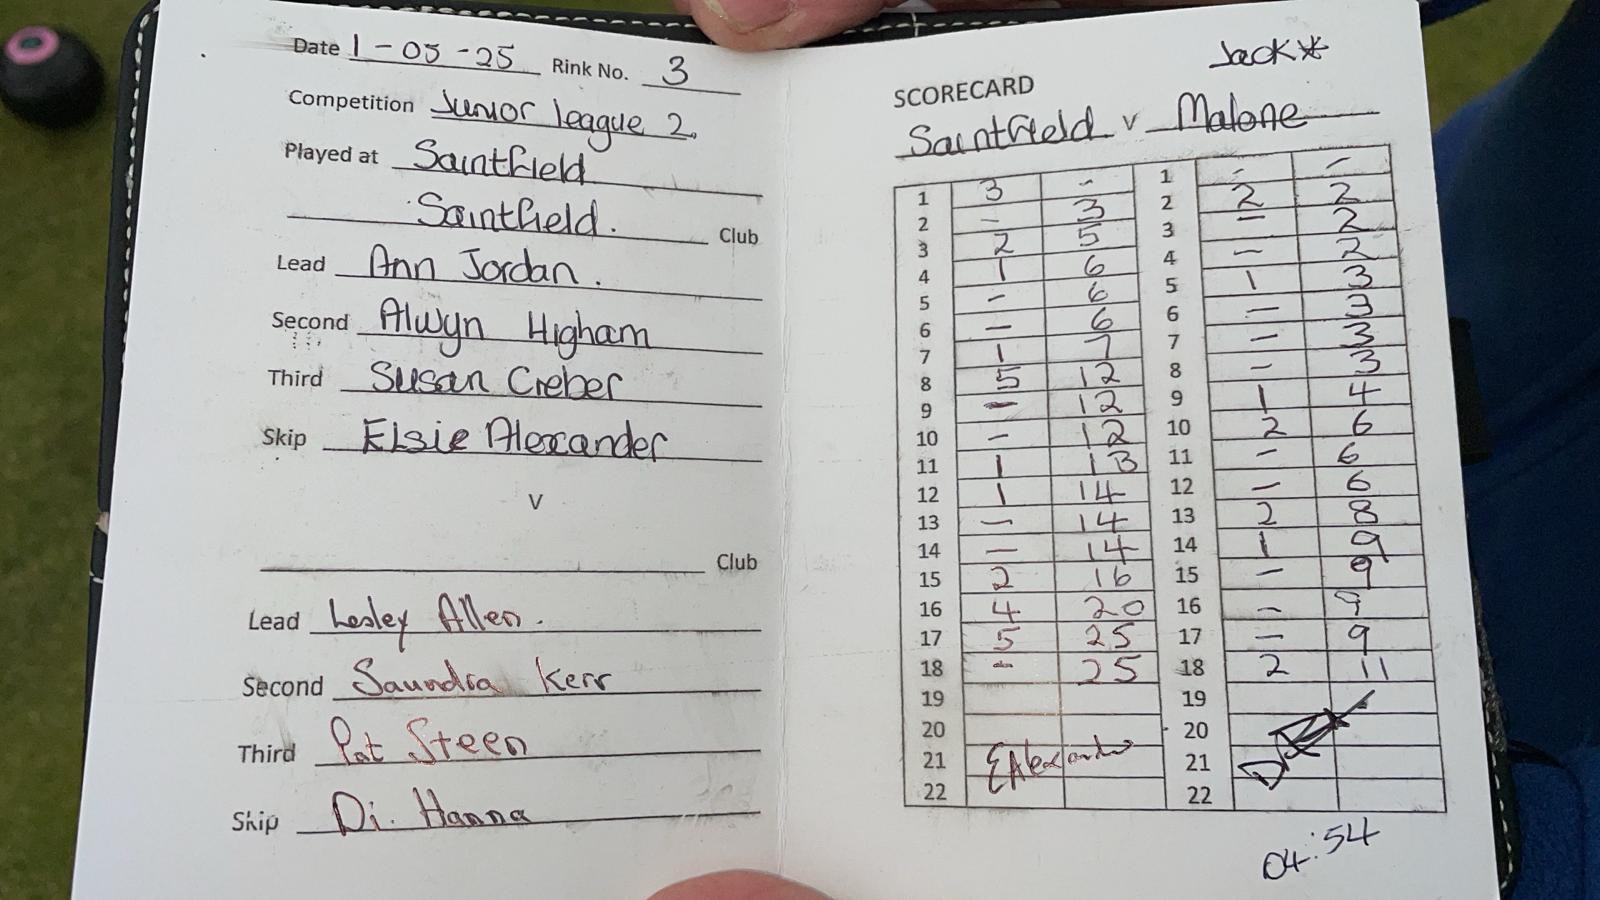 Date 1-05-25 Rink No. 3
Competition Junior league 2.
Played at Saintfield
Saintfield. Club
Lead Ann Jordan.
Second Alwyn Higham
Third Susan Creber
Skip Elsie Alexander
V
Club
Lead Lesley Allen.
Second Saundra Kerr
Third Pat Steen
Skip Di. Hanna
Jack*
SCORECARD
Saintfield v Malone
1 3 - 1 - -
2 - 3 2 2 2
3 2 5 3 - 2
4 1 6 4 - 2
5 - 6 5 1 3
6 - 6 6 - 3
7 1 7 7 - 3
8 5 12 8 - 3
9 - 12 9 1 4
10 - 12 10 2 6
11 1 13 11 - 6
12 1 14 12 - 6
13 - 14 13 2 8
14 - 14 14 1 9
15 2 16 15 - 9
16 4 20 16 - 9
17 5 25 17 - 9
18 - 25 18 2 11
19 19
20 20
21 EAlexander 21
22 22
04:54